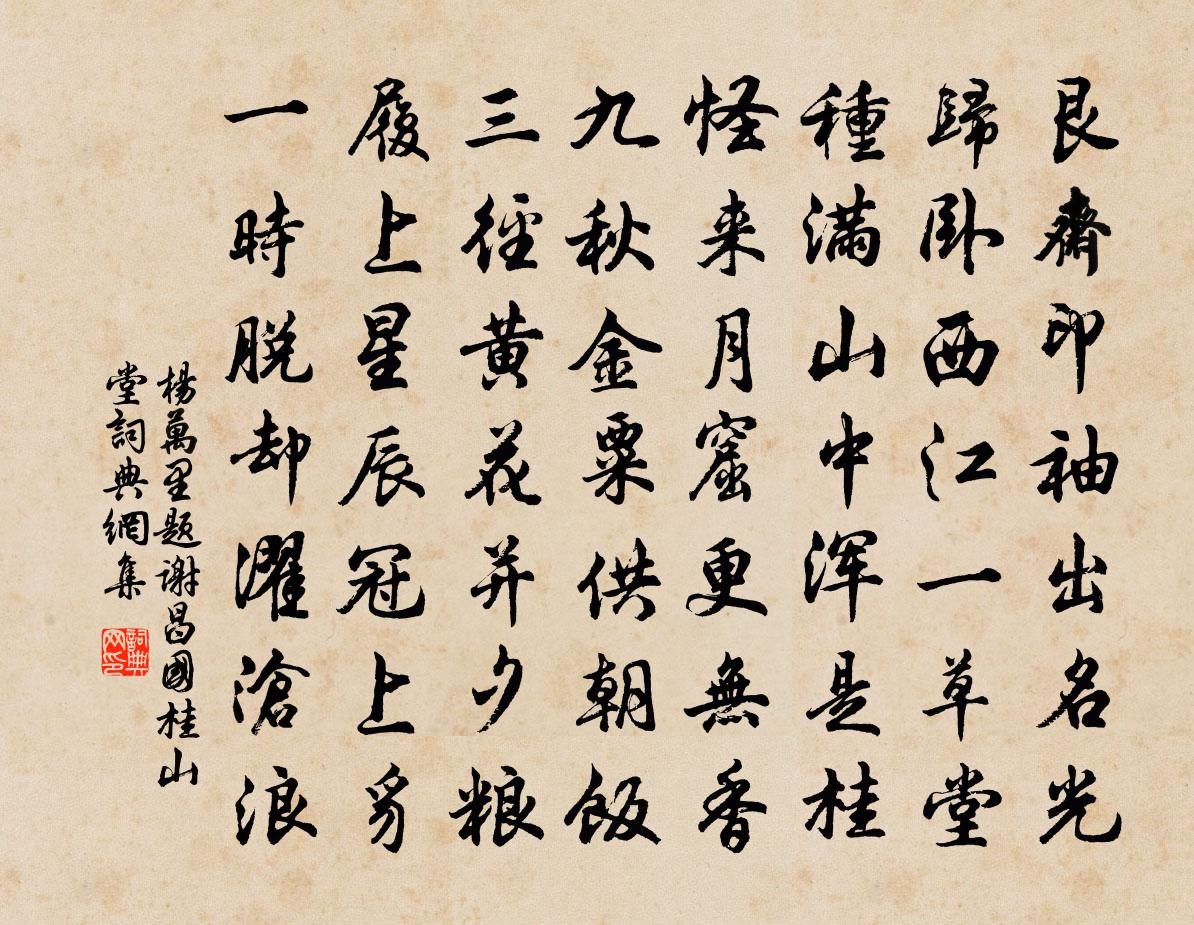 艮齋印袖出名光
歸卧西江一草堂
種滿山中渾是桂
怪来月窟更無香
九秋金粟供朝飯
三徑黄花并夕粮
履上星辰冠上豸
一時脱却濯滄浪
楊萬里题謝昌國桂山
堂詞典網集
詞典网印